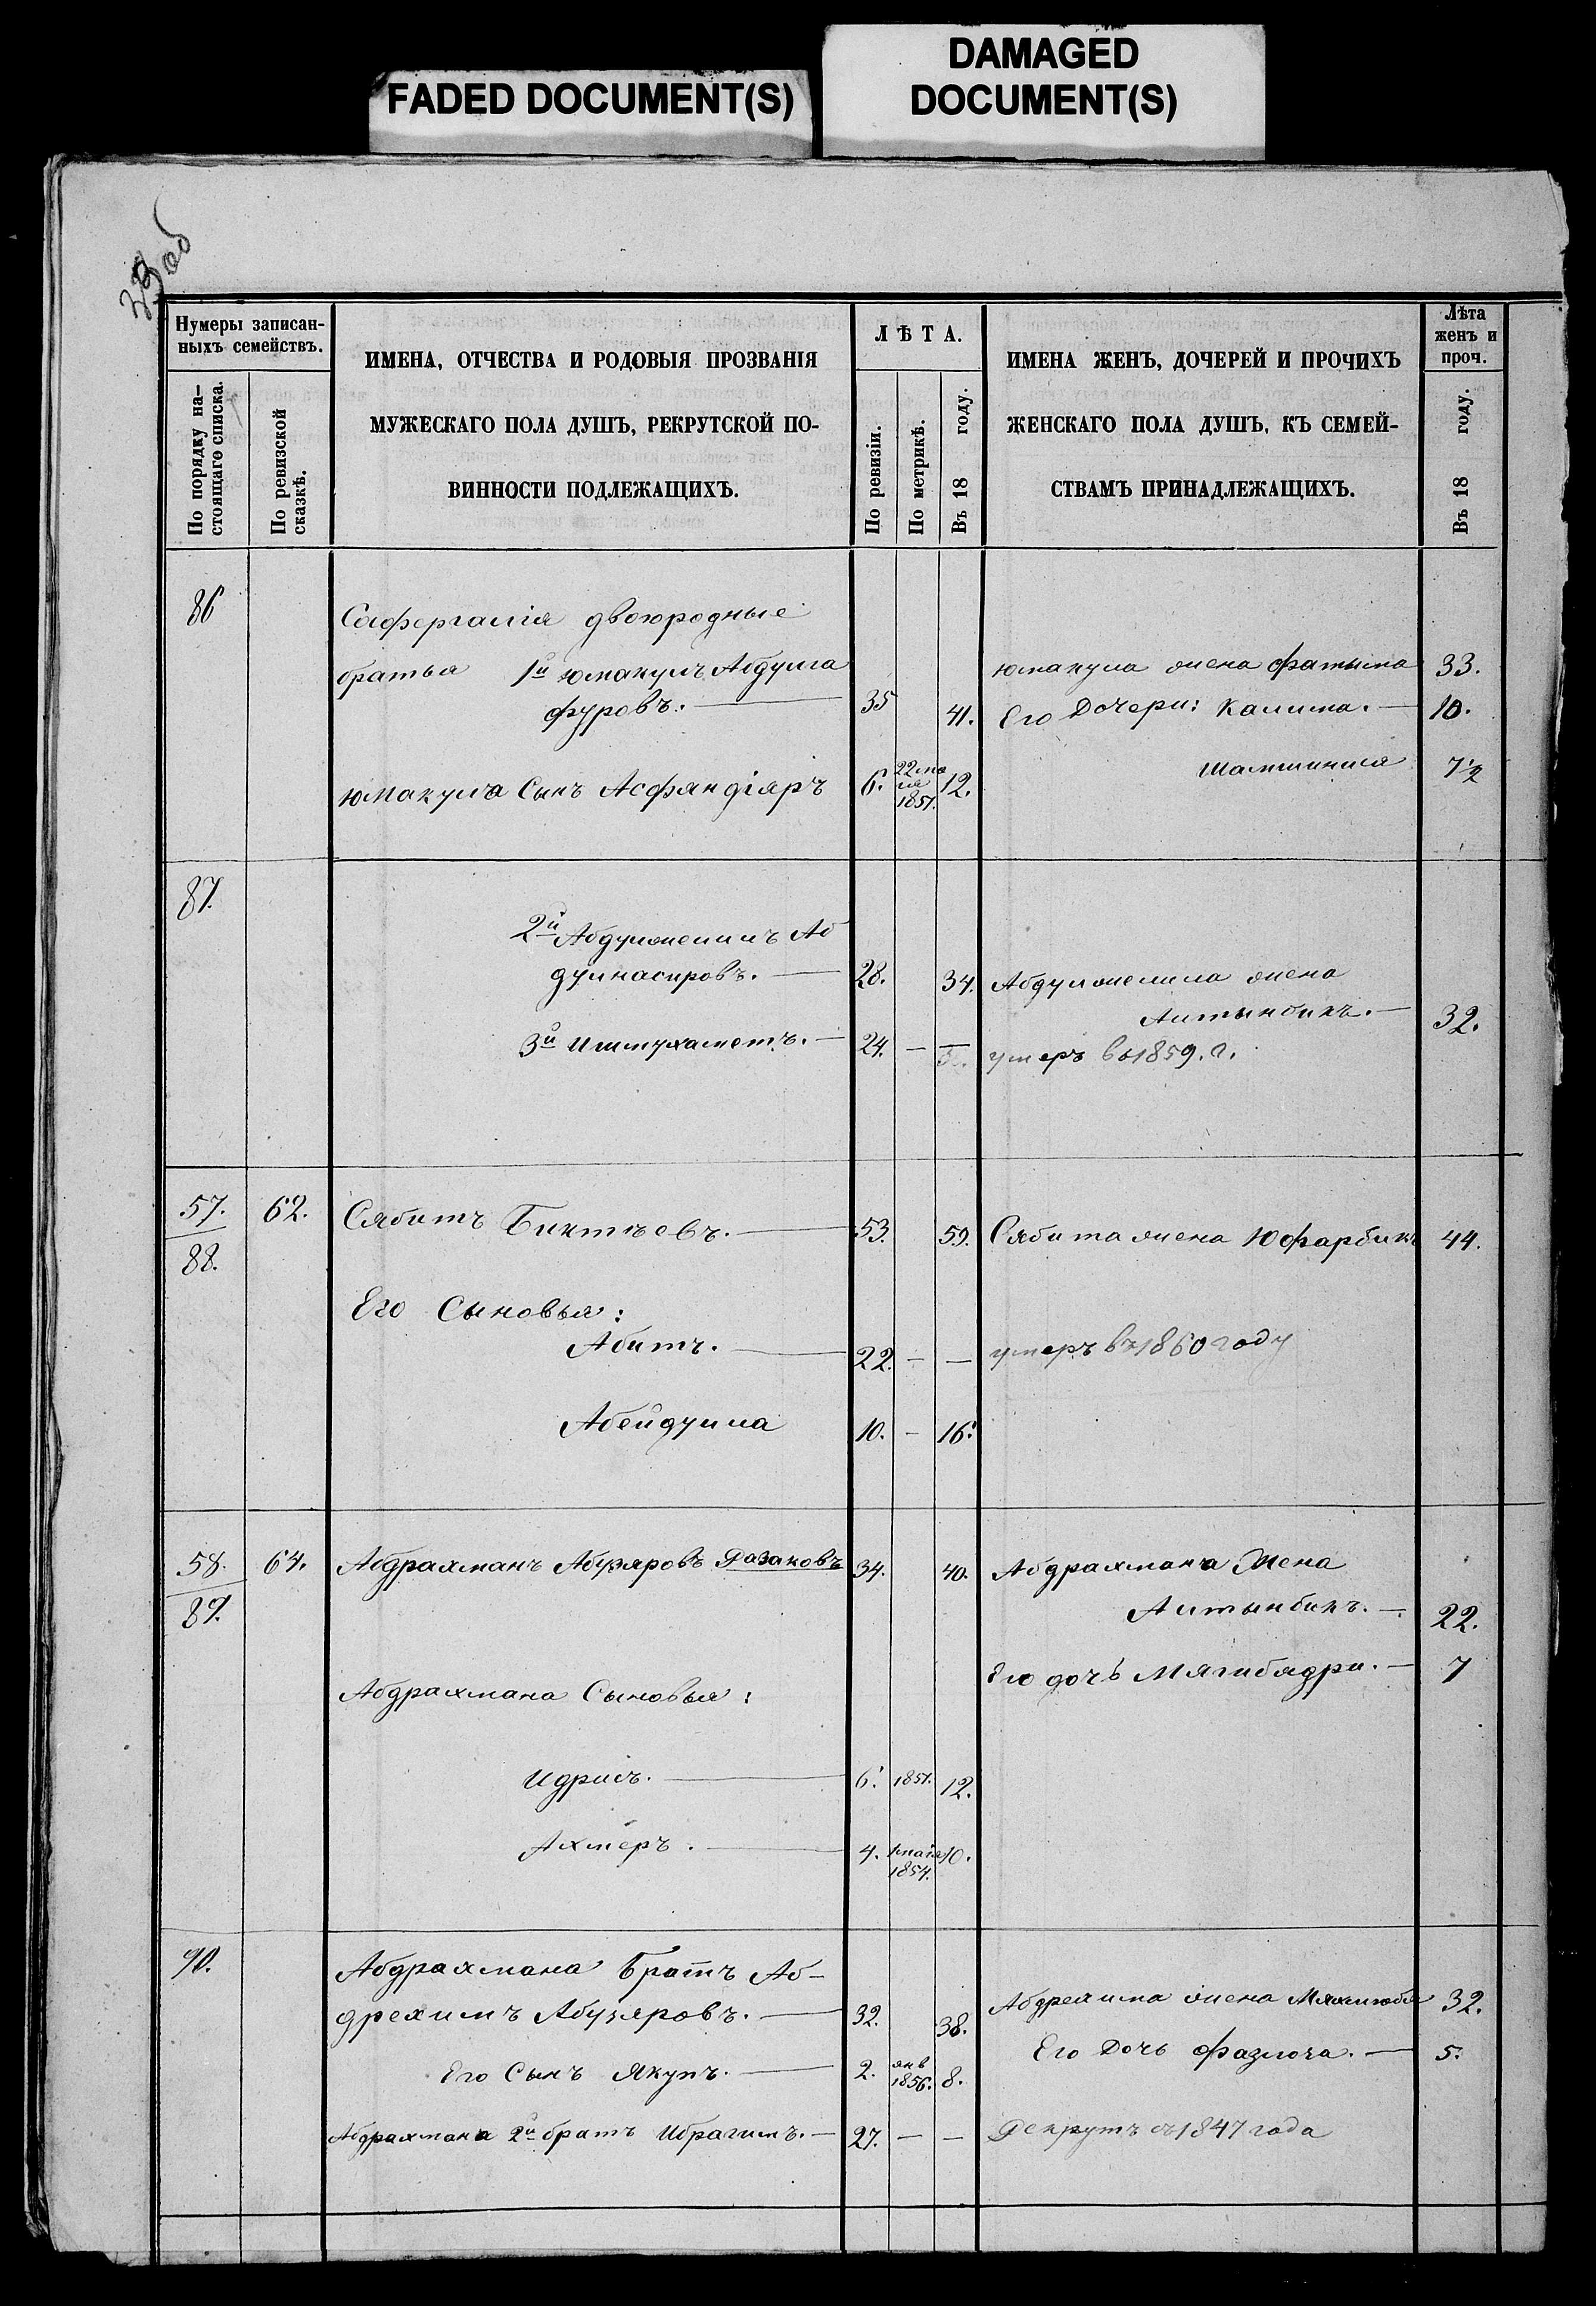 FADED DOCUMENT(S)
DAMAGED
DOCUMENT(S)
об
Нумеры записан-
ныхъ семействъ.
По порядку на-
стоящаго списка.
По ревизской
сказкѣ.
ИМЕНА, ОТЧЕСТВА И РОДОВЫЯ ПРОЗВАНІЯ
МУЖЕСКАГО ПОЛА ДУШЪ, РЕКРУТСКОЙ ПО-
ВИННОСТИ ПОДЛЕЖАЩИХЪ.
ЛѢТА.
По ревизіи.
По метрикѣ.
Въ 18 году.
ИМЕНА ЖЕНЪ, ДОЧЕРЕЙ И ПРОЧИХЪ
ЖЕНСКАГО ПОЛА ДУШЪ, КЪ СЕМЕЙ-
СТВАМЪ ПРИНАДЛЕЖАЩИХЪ.
Лѣта
женъ и
проч.
Въ 18 году.
86
Сафергалія двоюродные
братья 1й Юмакулъ Абдулга
фуровъ. — 35 41.
Юмакула жена Фатыма 33.
Его Дочери: Калима. — 10.
7½
Юмакула Сынъ Асфяндіяръ 6. 1851. 12.
87.
2й Абдулженилъ Аб
дулнасировъ. — 28. 34. Абдулжелила жена
Алтынбика. — 32.
3й Ишмухаметъ. — 24. — умеръ въ 1859. г.
57. 62. Сябитъ Биктѣевъ. — 53. 59. Сябита жена Юфарбика 44.
88.
Его Сыновья:
Абитъ. — 22. — — умеръ въ 1860 году
Абейдулла 10. — 16.
58. 64. Абдрахманъ Абузяровъ Разаковъ 34. 40. Абдрахмана Жена
89.
Алтынбика. — 22.
Его дочь Мягибядри. — 7
Абдрахмана Сыновья:
Идрисъ. — 6. 1851. 12.
Ахмеръ. — 4. 1 мая 1854. 10.
90.
Абдрахмана Братъ Аб-
дрехимъ Абузяровъ. — 32. 38.
Абдрехима жена 32.
Его Дочь — 5.
Его Сынъ Якупъ. — 2. янв 1856. 8.
Абдрахмана 2й братъ Ибрагимъ. — 27. — — Рекрутъ съ 1847 года